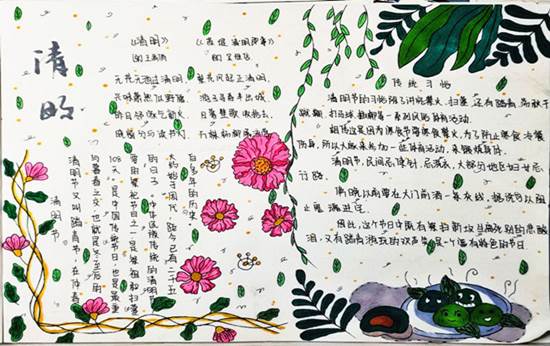 清明
《清明》
[宋]王禹偁
无花无酒过清明
兴味萧然似野僧
昨日邻家乞新火
晓窗分与读书灯
《苏堤清明即事》
吴惟信
梨花风起正清明
游子寻春半出城
日暮笙歌收拾去
万株杨柳属流莺
清明节
清明节又叫踏青节,在仲春
与暮春之交,也就是冬至后的
108天。是中国传统节日,也是最重
要的祭祀节日之一,是祭祖和扫墓
的日子。中华民族传统的清明节
大约始于周代,距今已有二千五
百多年的历史
传统习俗
清明节的习俗除了讲究禁火、扫墓,还有踏青、荡秋千
蹴鞠、打马球、插柳等一系列风俗体育活动。
相传这是因为清明节需寒食禁火,为了防止寒食冷餐
伤身,所以大家来参加一些体育活动,来锻炼身体。
清明节,民间忌使针,忌洗衣,大部分地区妇女忌
行路。
傍晚以前要在大门前洒一条灰线,据说可以阻
止鬼魂进宅。
因此,这个节日中既有祭扫新坟生离死别的悲酸
泪,又有踏青游玩的欢声笑,是一个富有特色的节日